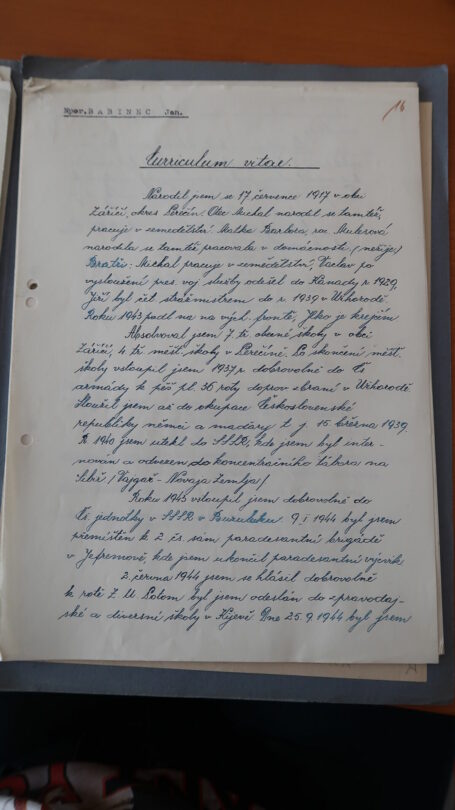 Npor. BABINEC Jan.
16
Curriculum vitae.
Narodil jsem se 17 července 1917 v obci
Zářičí, okres Perečín. Otec Michal narodil se tamtéž,
pracuje v zemědělství. Matka Barbora, roz.
narodila se tamtéž pracovala v domácnosti (nežije)
Bratři: Michal pracuje v zemědělství, Vaclav po
vysloužení pres. voj služby odešel do Kanady r 1929,
Jiří byl čet. strážmistrem do r. 1939 v Užhorodě
Roku 1943 padl na vých. frontě, je krejčím
Absolvoval jsem 7 tř. obecné školy v obci
Zářičí, 4 tř. měšt. školy v Perečíně. Po skončení měšt.
školy vstoupil jsem 1937 r dobrovolně do Čs
armády k pěš pl. 36 roty doprov zbraní v Užhorodě
Sloužil jsem až do okupace Československé
republiky němci a maďary t. j. 15 března 1939.
R 1940 jsem utekl do SSSR, kde jsem byl inter-
nován a odvezen do koncentračního tábora na
Sibiř / - Novaja Zemlja/
Roku 1943 vstoupil jsem dobrovolně do
Čs. jednotky v SSSR v Buzuluku. 9. I 1944 byl jsem
přemístěn k 2 čs. sam paradesantní brigádě
v Jefremově, kde jsem ukončil paradesantní výcvik
2. června 1944 jsem se hlásil dobrovolně
k rotě Z. U. Potom byl jsem odeslán do zpravodaj-
ské a diversní školy v Kijevě. Dne 25. 9. 1944 byl jsem